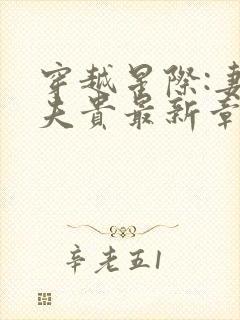 穿越星際:妻
夫貴最新章
辛老五1